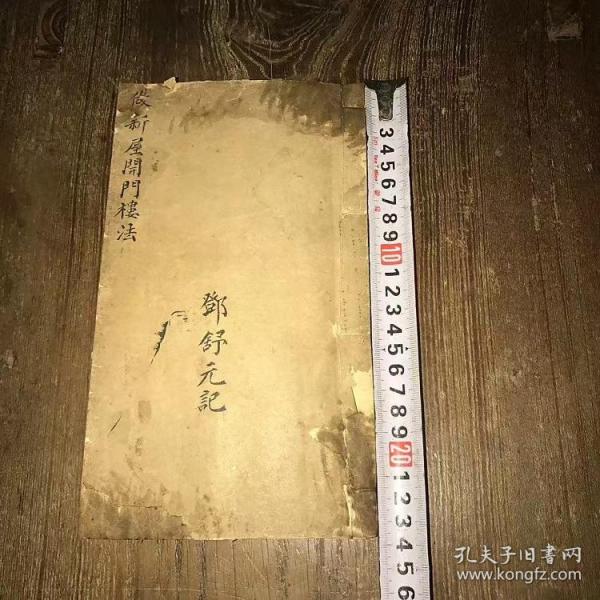 做新屋開門樓法
鄧舒元記
3 4 5 6 7 8 9 10 1 2 3 4 5 6 7 8 9 20 1 2 3 4 5 6
孔夫子旧書网
www.kongfz.com